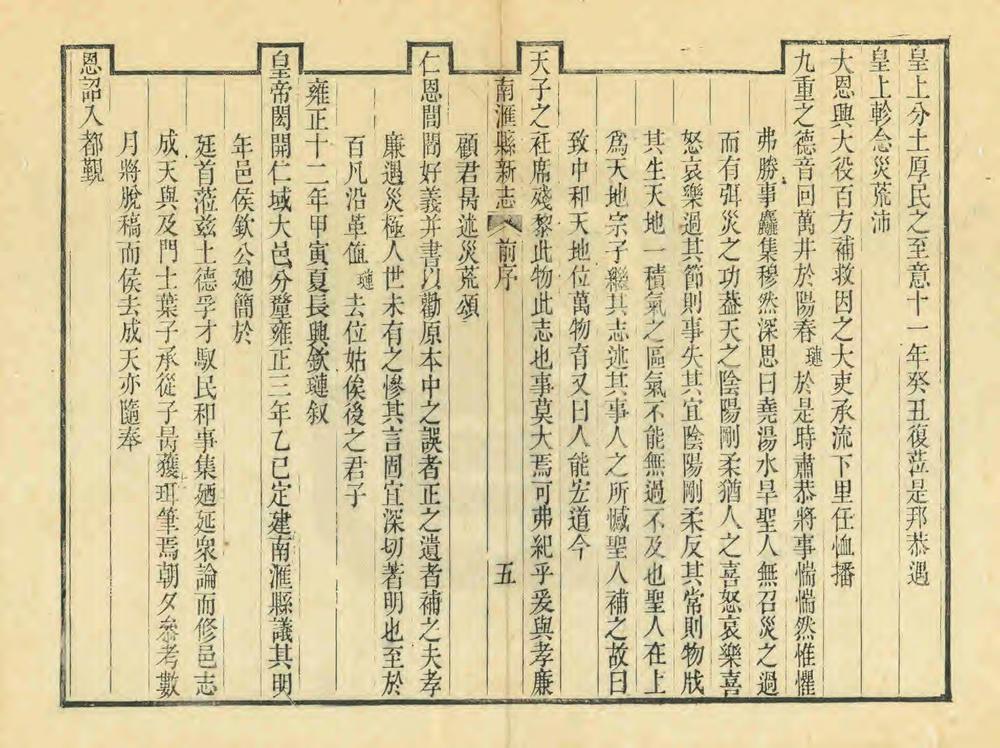 皇上分土厚民之至意十一年癸丑復蒞是邦恭遇
皇上軫念災荒沛
大恩興大役百方補救因之大吏承流下里任恤播
九重之德音回萬井於陽春璉於是時肅恭將事惴惴然惟懼
弗勝事廳集穆然深思曰堯湯水旱聖人無召災之過
而有弭災之功葢天之陰陽剛柔猶人之喜怒哀樂喜
怒哀樂過其節則事失其宜陰陽剛柔反其常則物戕
其生天地一積氣之區氣不能無過不及也聖人在上
爲天地宗子繼其志述其事人之所憾聖人補之故曰
致中和天地位萬物育又曰人能宏道今
天子之社席殘黎此物此志也事莫大焉可弗紀乎爰與孝廉
南滙縣新志 前序 五
顧君昺述災荒頌
仁恩閭閻好義并書以勸原本中之誤者正之遺者補之夫孝
廉遇災極人世未有之慘其言固宜深切著明也至於
百凡沿革値璉去位姑俟後之君子
雍正十二年甲寅夏長興欽璉叙
皇帝閎開仁域大邑分釐雍正三年乙巳定建南滙縣議其明
年邑侯欽公廸簡於
廷首蒞茲土德孚才馭民和事集廼延衆論而修邑志
成天與及門士葉子承從子昺獲珥筆焉朝夕叅考數
月將脫稿而侯去成天亦隨奉
恩詔入都覲